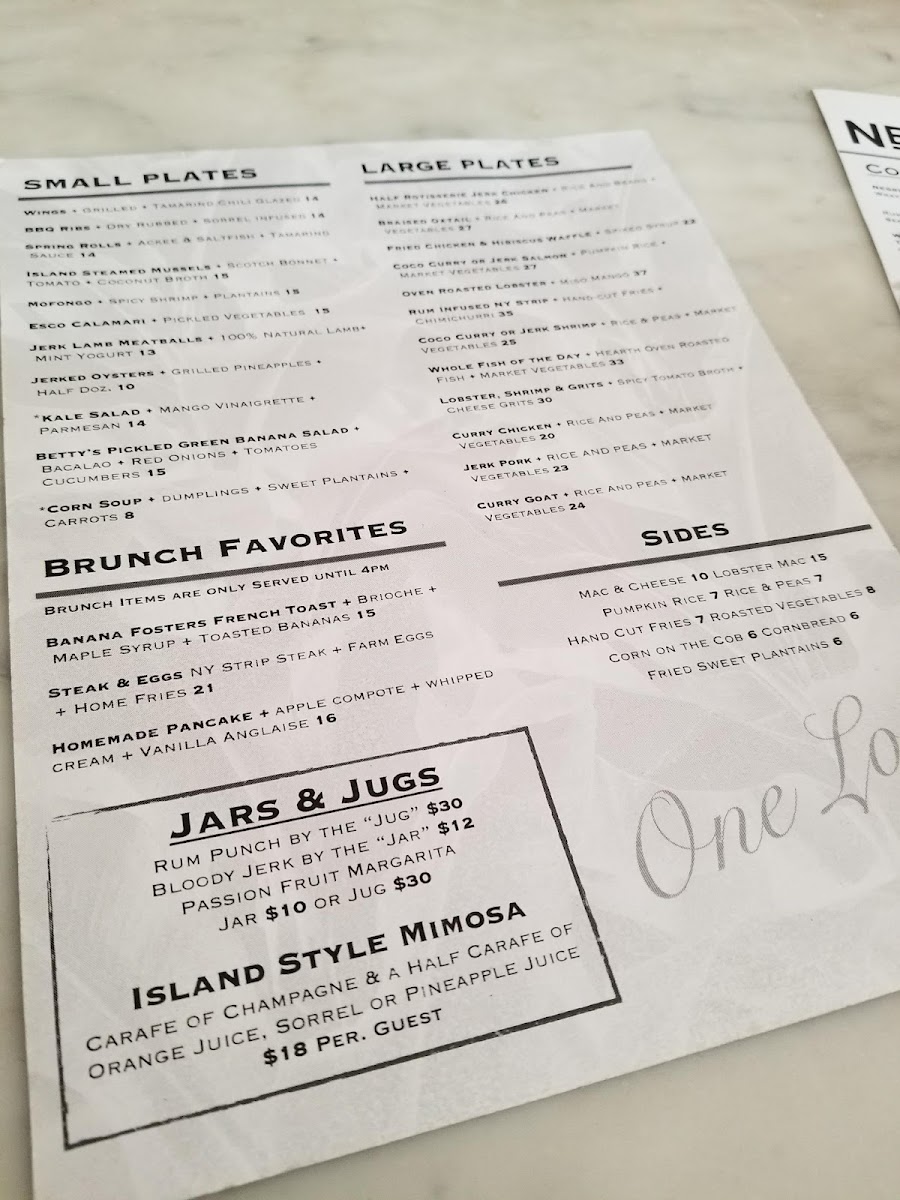 SMALL PLATES
WINGS + GRILLED + TAMARIND CHILI GLAZED 14
BBQ RIBS + DRY RUBBED + SORREL INFUSED 14
SPRING ROLLS + ACKEE & SALTFISH + TAMARIND
SAUCE 14
ISLAND STEAMED MUSSELS + SCOTCH BONNET +
TOMATO + COCONUT BROTH 15
MOFONGO + SPICY SHRIMP + PLANTAINS 15
ESCO CALAMARI + PICKLED VEGETABLES 15
JERK LAMB MEATBALLS + 100% NATURAL LAMB+
MINT YOGURT 13
JERKED OYSTERS + GRILLED PINEAPPLES +
HALF DOZ. 10
*KALE SALAD + MANGO VINAIGRETTE +
PARMESAN 14
BETTY'S PICKLED GREEN BANANA SALAD +
BACALAO + RED ONIONS + TOMATOES
CUCUMBERS 15
*CORN SOUP + DUMPLINGS + SWEET PLANTAINS +
CARROTS 8
BRUNCH FAVORITES
BRUNCH ITEMS ARE ONLY SERVED UNTIL 4PM
BANANA FOSTERS FRENCH TOAST + BRIOCHE +
MAPLE SYRUP + TOASTED BANANAS 15
STEAK & EGGS NY STRIP STEAK + FARM EGGS
+ HOME FRIES 21
HOMEMADE PANCAKE + APPLE COMPOTE + WHIPPED
CREAM + VANILLA ANGLAISE 16
JARS & JUGS
RUM PUNCH BY THE "JUG" $30
BLOODY JERK BY THE "JAR" $12
PASSION FRUIT MARGARITA
JAR $10 OR JUG $30
ISLAND STYLE MIMOSA
CARAFE OF CHAMPAGNE & A HALF CARAFE OF
ORANGE JUICE, SORREL OR PINEAPPLE JUICE
$18 PER. GUEST
LARGE PLATES
HALF ROTISSERIE JERK CHICKEN + RICE AND BEANS +
MARKET VEGETABLES 26
BRAISED OXTAIL + RICE AND PEAS + MARKET
VEGETABLES 27
FRIED CHICKEN & HIBISCUS WAFFLE + SPICED SYRUP 22
COCO CURRY OR JERK SALMON + PUMPKIN RICE +
MARKET VEGETABLES 27
OVEN ROASTED LOBSTER + MISO MANGO 37
RUM INFUSED NY STRIP + HAND CUT FRIES +
CHIMICHURRI 35
COCO CURRY OR JERK SHRIMP + RICE & PEAS + MARKET
VEGETABLES 25
WHOLE FISH OF THE DAY + HEARTH OVEN ROASTED
FISH + MARKET VEGETABLES 33
LOBSTER, SHRIMP & GRITS + SPICY TOMATO BROTH +
CHEESE GRITS 30
CURRY CHICKEN + RICE AND PEAS + MARKET
VEGETABLES 20
JERK PORK + RICE AND PEAS + MARKET
VEGETABLES 23
CURRY GOAT + RICE AND PEAS + MARKET
VEGETABLES 24
SIDES
MAC & CHEESE 10 LOBSTER MAC 15
PUMPKIN RICE 7 RICE & PEAS 7
HAND CUT FRIES 7 ROASTED VEGETABLES 8
CORN ON THE COB 6 CORNBREAD 6
FRIED SWEET PLANTAINS 6
One Lo